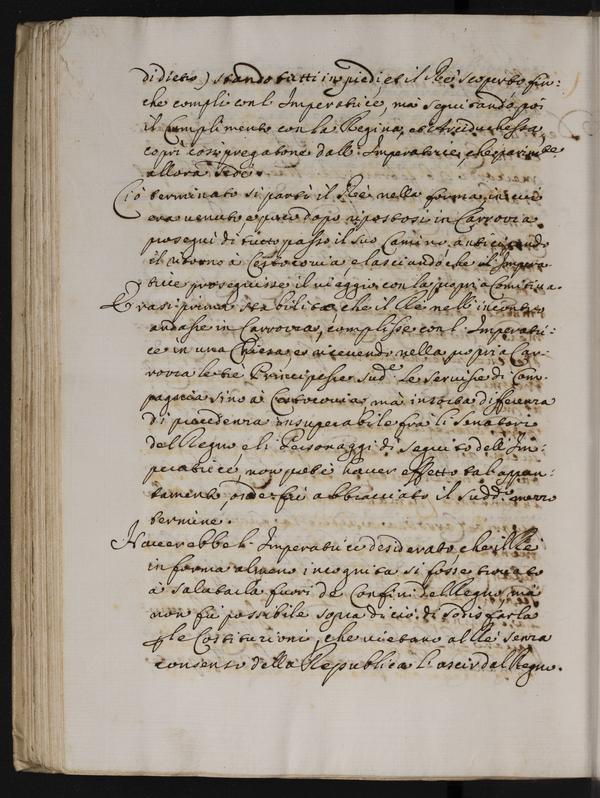 di dietro) stando tutti in piedi, et il Rè scoperto fin:
che compli con l'Imperatrice, mà seguitando poi
il Complimento con la Regina, et Arciduchessa
coprì così pregatone dall'Imperatrice, che parimente
allora sedè.
Ciò terminato si partì il Rè nella forma, in cui
era venuto e poco dopo ripostosi in Carrozza
proseguì di tutto passo il suo Camino anticipando
il ritorno à Cestocovia, e lasciando che l'Impera:
trice proseguisse il viaggio con la propria Comitiva.
Erasi prima stabilito, che il Rè nell'incontro
andasse in Carrozza, complisse con l'Imperatri:
ce in una Chiesa, et ricevendo nella propria Car:
rozza le trè Principesse sud.e le servisse di Com:
pagnia sino à Cestocovia, mà insorta differenza
di precedenza insuperabile frà li Senatori
del Regno e li Personaggi di seguito dell'Im:
peratrice, non potè haver effetto tal appun:
tamento, onde fù abbracciato il sudd.o mezzo
termine.
Haverebbe l'Imperatrice desiderato che il Rè
in forma almeno incognita si fosse trovato
à salutarla fuori de Confini del Regno, mà
non fù possibile sopra di ciò di sodisfarla
p le Costituzioni, che vietano al Rè senza
consenso della Republica l'uscir dal Regno.